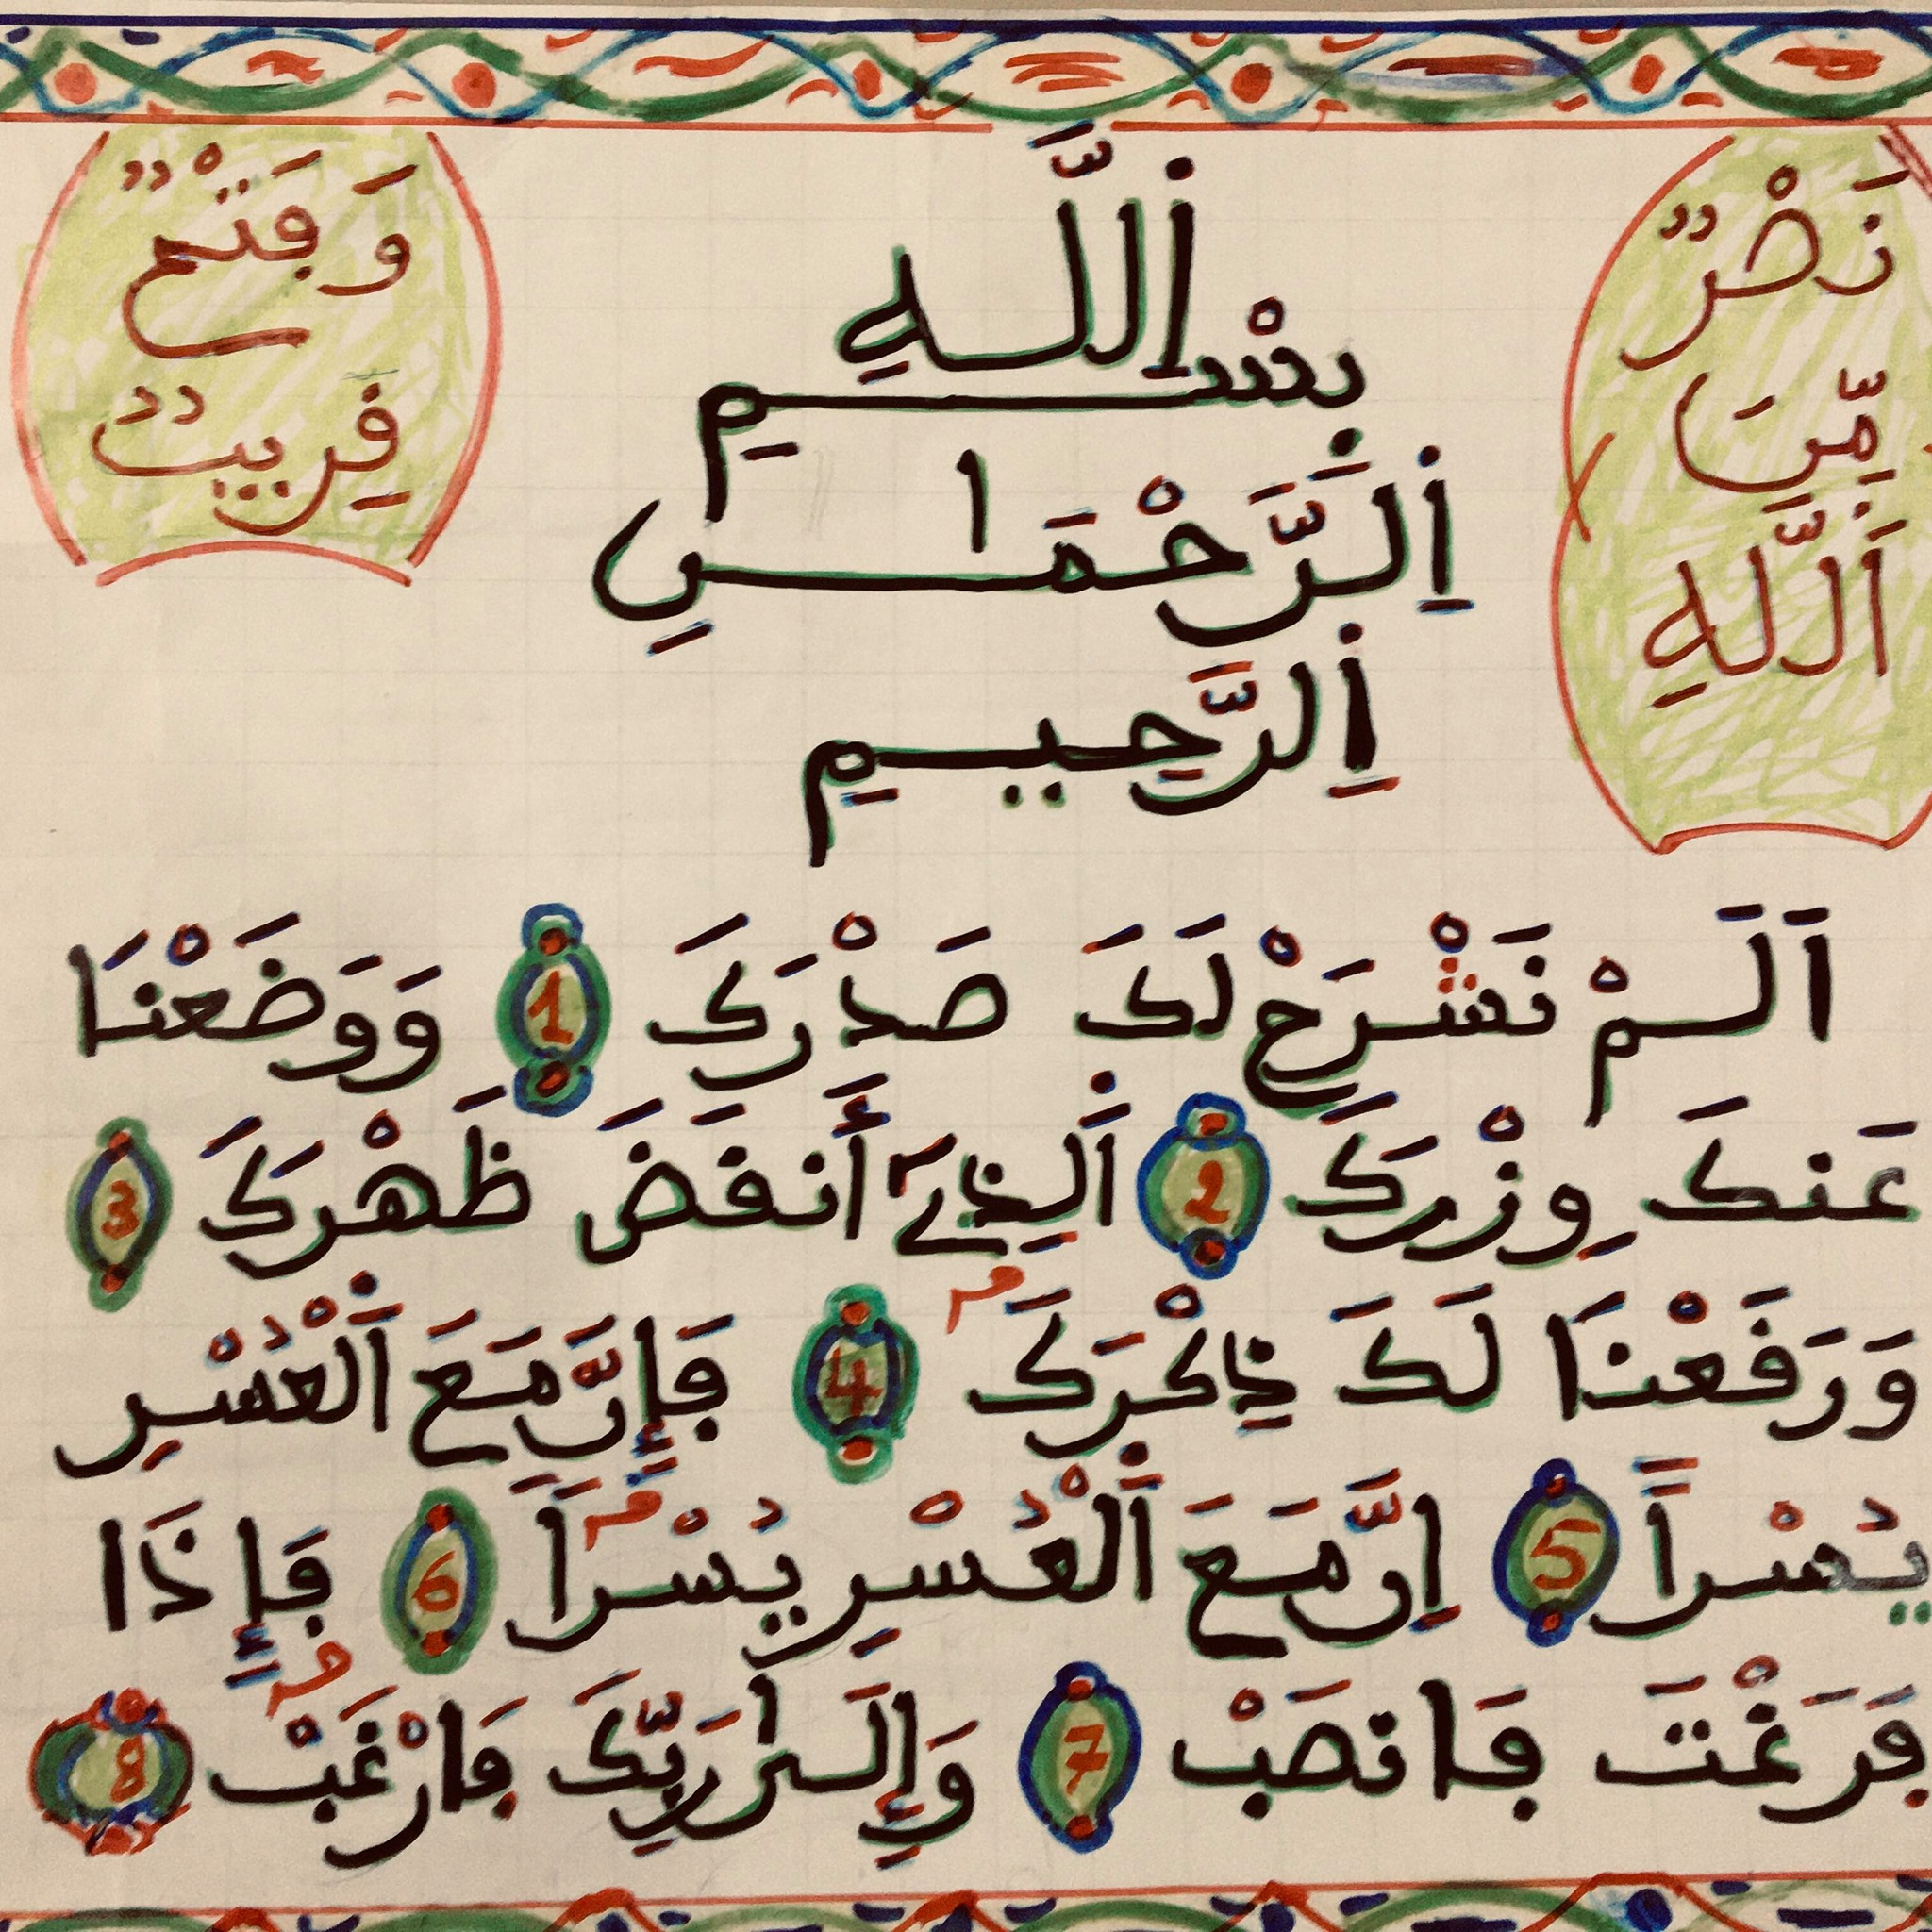 نَصْرٌ
مِّنَ
اَللَّهِ
وَفَتْحٌ
قَرِيبٌ
بِسْمِ اِللَّهِ
اِلرَّحْمَانِ
اِلرَّحِيمِ
اَلَمْ نَشْرَحْ لَكَ صَدْرَكَ 1 وَوَضَعْنَا
عَنكَ وِزْرَكَ 2 اَلذِے أَنقَضَ ظَهْرَكَ 3
وَرَفَعْنَا لَكَ ذِكْرَكَ 4 فَإِنَّ مَعَ اَلْعُسْرِ
يُسْراً 5 اِنَّ مَعَ اَلْعُسْرِ يُسْراً 6 فَإِذَا
فَرَغْتَ فَانصَبْ 7 وَإِلَىٰ رَبِّكَ فَارْغَبْ 8